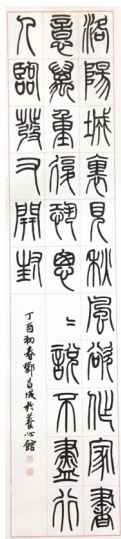 洛陽城裏見秋風欲作家書
意萬重復恐悤〻說不盡行
人臨發又開封
丁酉初春鄧昌成於養心館